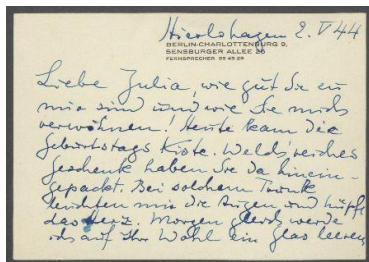 Nierlshagen 2. V 44
BERLIN-CHARLOTTENBURG 9,
SENSBURGER ALLEE 26
FERNSPRECHER 99 45 29
Liebe Julia, wie gut Sie zu
mir sind und wie Sie mich
verwöhnen! Heute kam die
Geburtstags Kiste. Welch' reiches
Geschenk haben Sie da hinein-
gepackt. Bei solchem Trunke
leuchten mir die Augen und hüpft
das Herz. Morgen gleich werde
ich auf Ihr Wohl ein Glas leeren